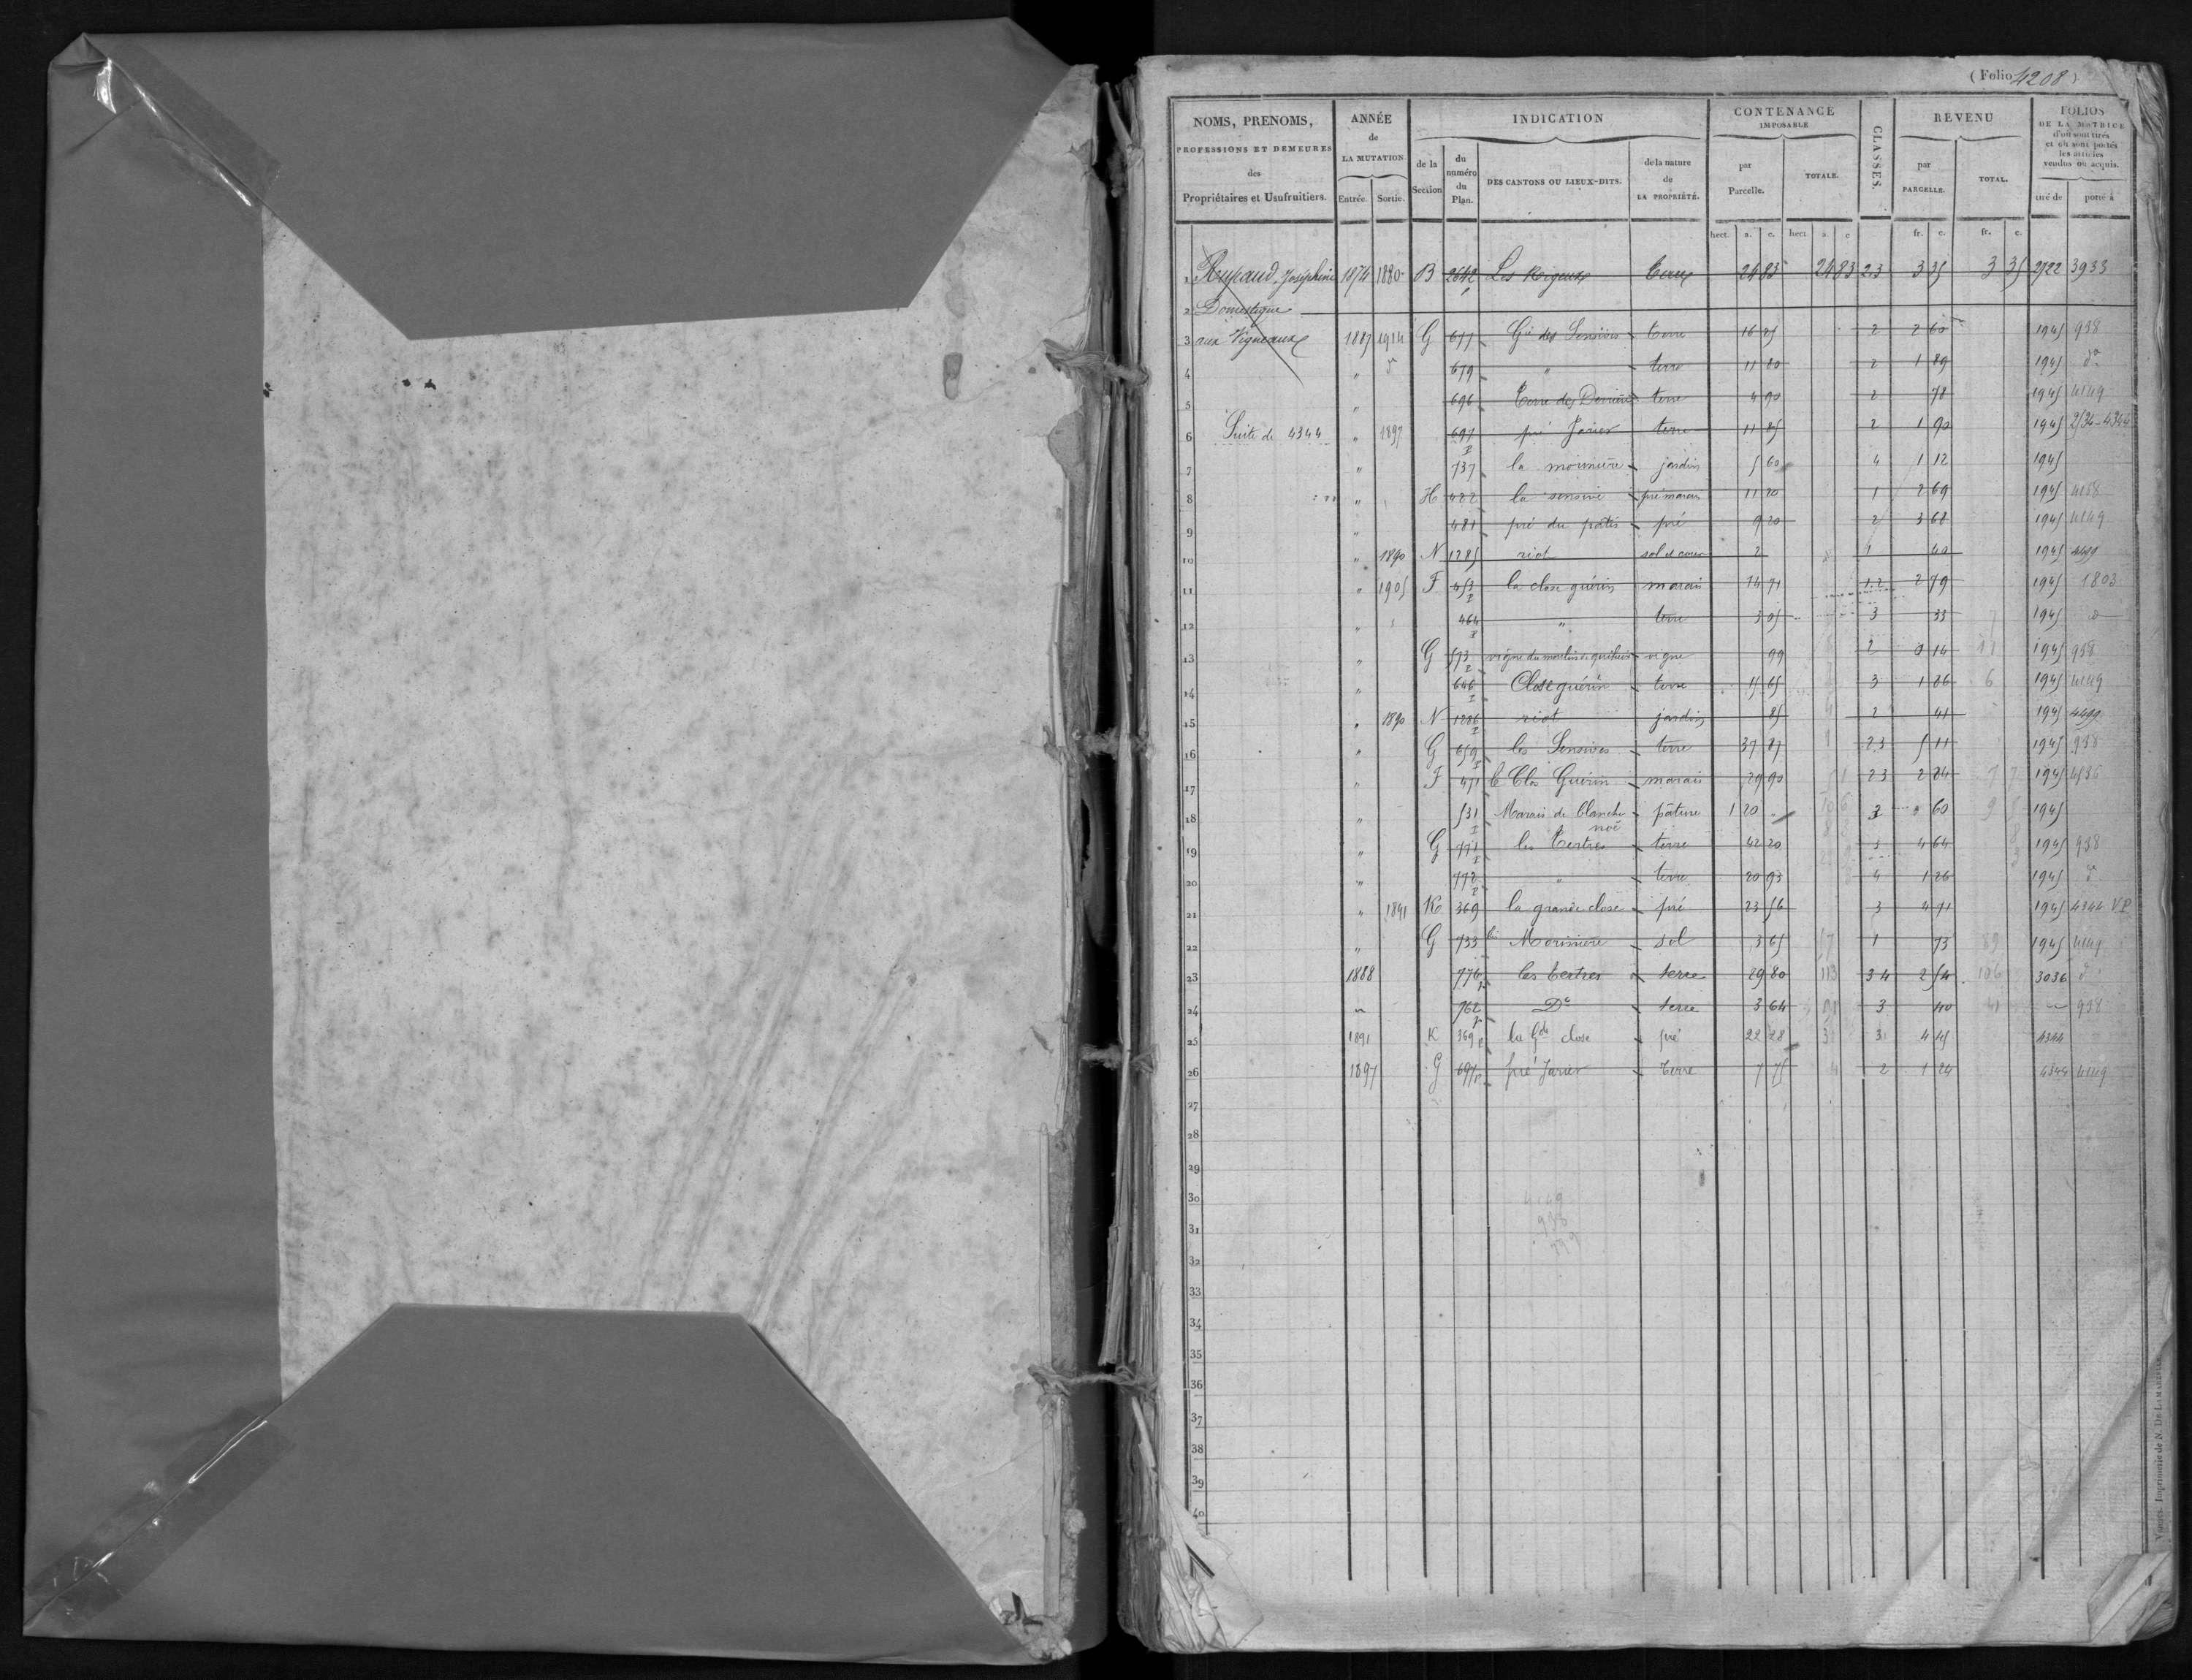 ( Folio 4208 )
NOMS, PRENOMS, PROFESSIONS ET DEMEURES des Propriétaires et Usufruitiers.
ANNÉE de LA MUTATION Entrée. Sortie.
INDICATION
de la Section
du numéro du Plan.
DES CANTONS OU LIEUX-DITS.
de la nature de LA PROPRIÉTÉ.
CONTENANCE IMPOSABLE
par Parcelle. TOTALE.
CLASSES.
REVENU
par PARCELLE. TOTAL.
FOLIOS DE LA MATRICE d'où sont tirés et où sont portés les articles vendus ou acquis.
tiré de porté à
hect. a. c. hect. a. c fr. c. fr. c.
1 Joséphine 1874 1880 B 2642 Les Terre 24 83 24 83 2.3 3 35 3 35 2722 3933
2 Domestique
3 aux Vigneaux 1887 1914 G 677 terre 16 25 2 2 60 1945 938
4 " d° 679 " terre 11 80 2 1 89 1945 d°
5 " 696 terre 4 90 2 78 1945 4149
6 Suite de 4344 " 1897 697 pré Jarier terre 11 85 2 1 90 1945 4344
7 " 737 la jardin 5 60 4 1 12 1945
8 " H 422 la sensive pré marais 11 20 1 2 69 1945
9 " 481 pré du patis pré 9 20 2 3 68 1945 4149
10 " 1890 N 1285 riot sol et cour 2 1 40 1945 4499
11 " 1905 F 453 la close guérin marais 14 71 1.2 2 79 1945 1803
12 " 464 " terre 3 05 3 33 1945 d°
13 " G 573 vigne du moulin vigne 99 2 0 14 1945 938
14 " 646 Close guérin terre 15 65 3 1 86 1945 4149
15 " 1890 N 1286 riot jardin 85 2 41 1945 4499
16 " G 659 les Sensives terre 37 87 2.3 5 11 1945 938
17 " F 471 Clos Guérin marais 29 90 2 3 2 84 1945
18 " 531 Marais de blanche noë pâture 1 20 3 " 60 1945
19 " G 771 les Tertres terre 42 20 3 4 64 1945 938
20 " 772 " terre 20 93 4 1 26 1945 d°
21 " 1891 K 369 la grande close pré 23 56 3 4 71 1945 4344 V.P
22 " G 733 bis Morinière sol 3 65 1 73 1945 4149
23 1888 774 les tertres terre 29 80 3 4 2 54 3036 d°
24 " 762 D° terre 3 64 3 40 " 938
25 1891 K 369 la Gde close pré 22 28 3 4 45 4344
26 1897 G 697 pré Jarier Terre 7 75 2 1 24 4344 4149
27
28
29
30 4149
31 938
32
33
34
35
36
37
38
39
40